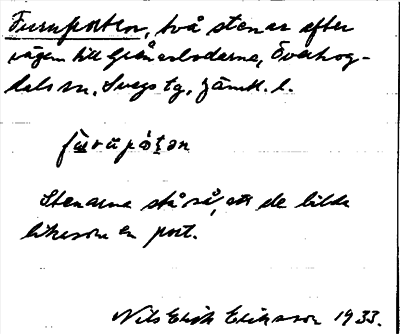 Furuporten, två stenar efter
vägen till Gränarbodarna, Överhog-
dals sn, Svegs tg, Jämtl. l.
fùrupó̤ṭən
Stenarna stå så, att de bilda
liksom en port.
Nils Erik Eriksson 1933.